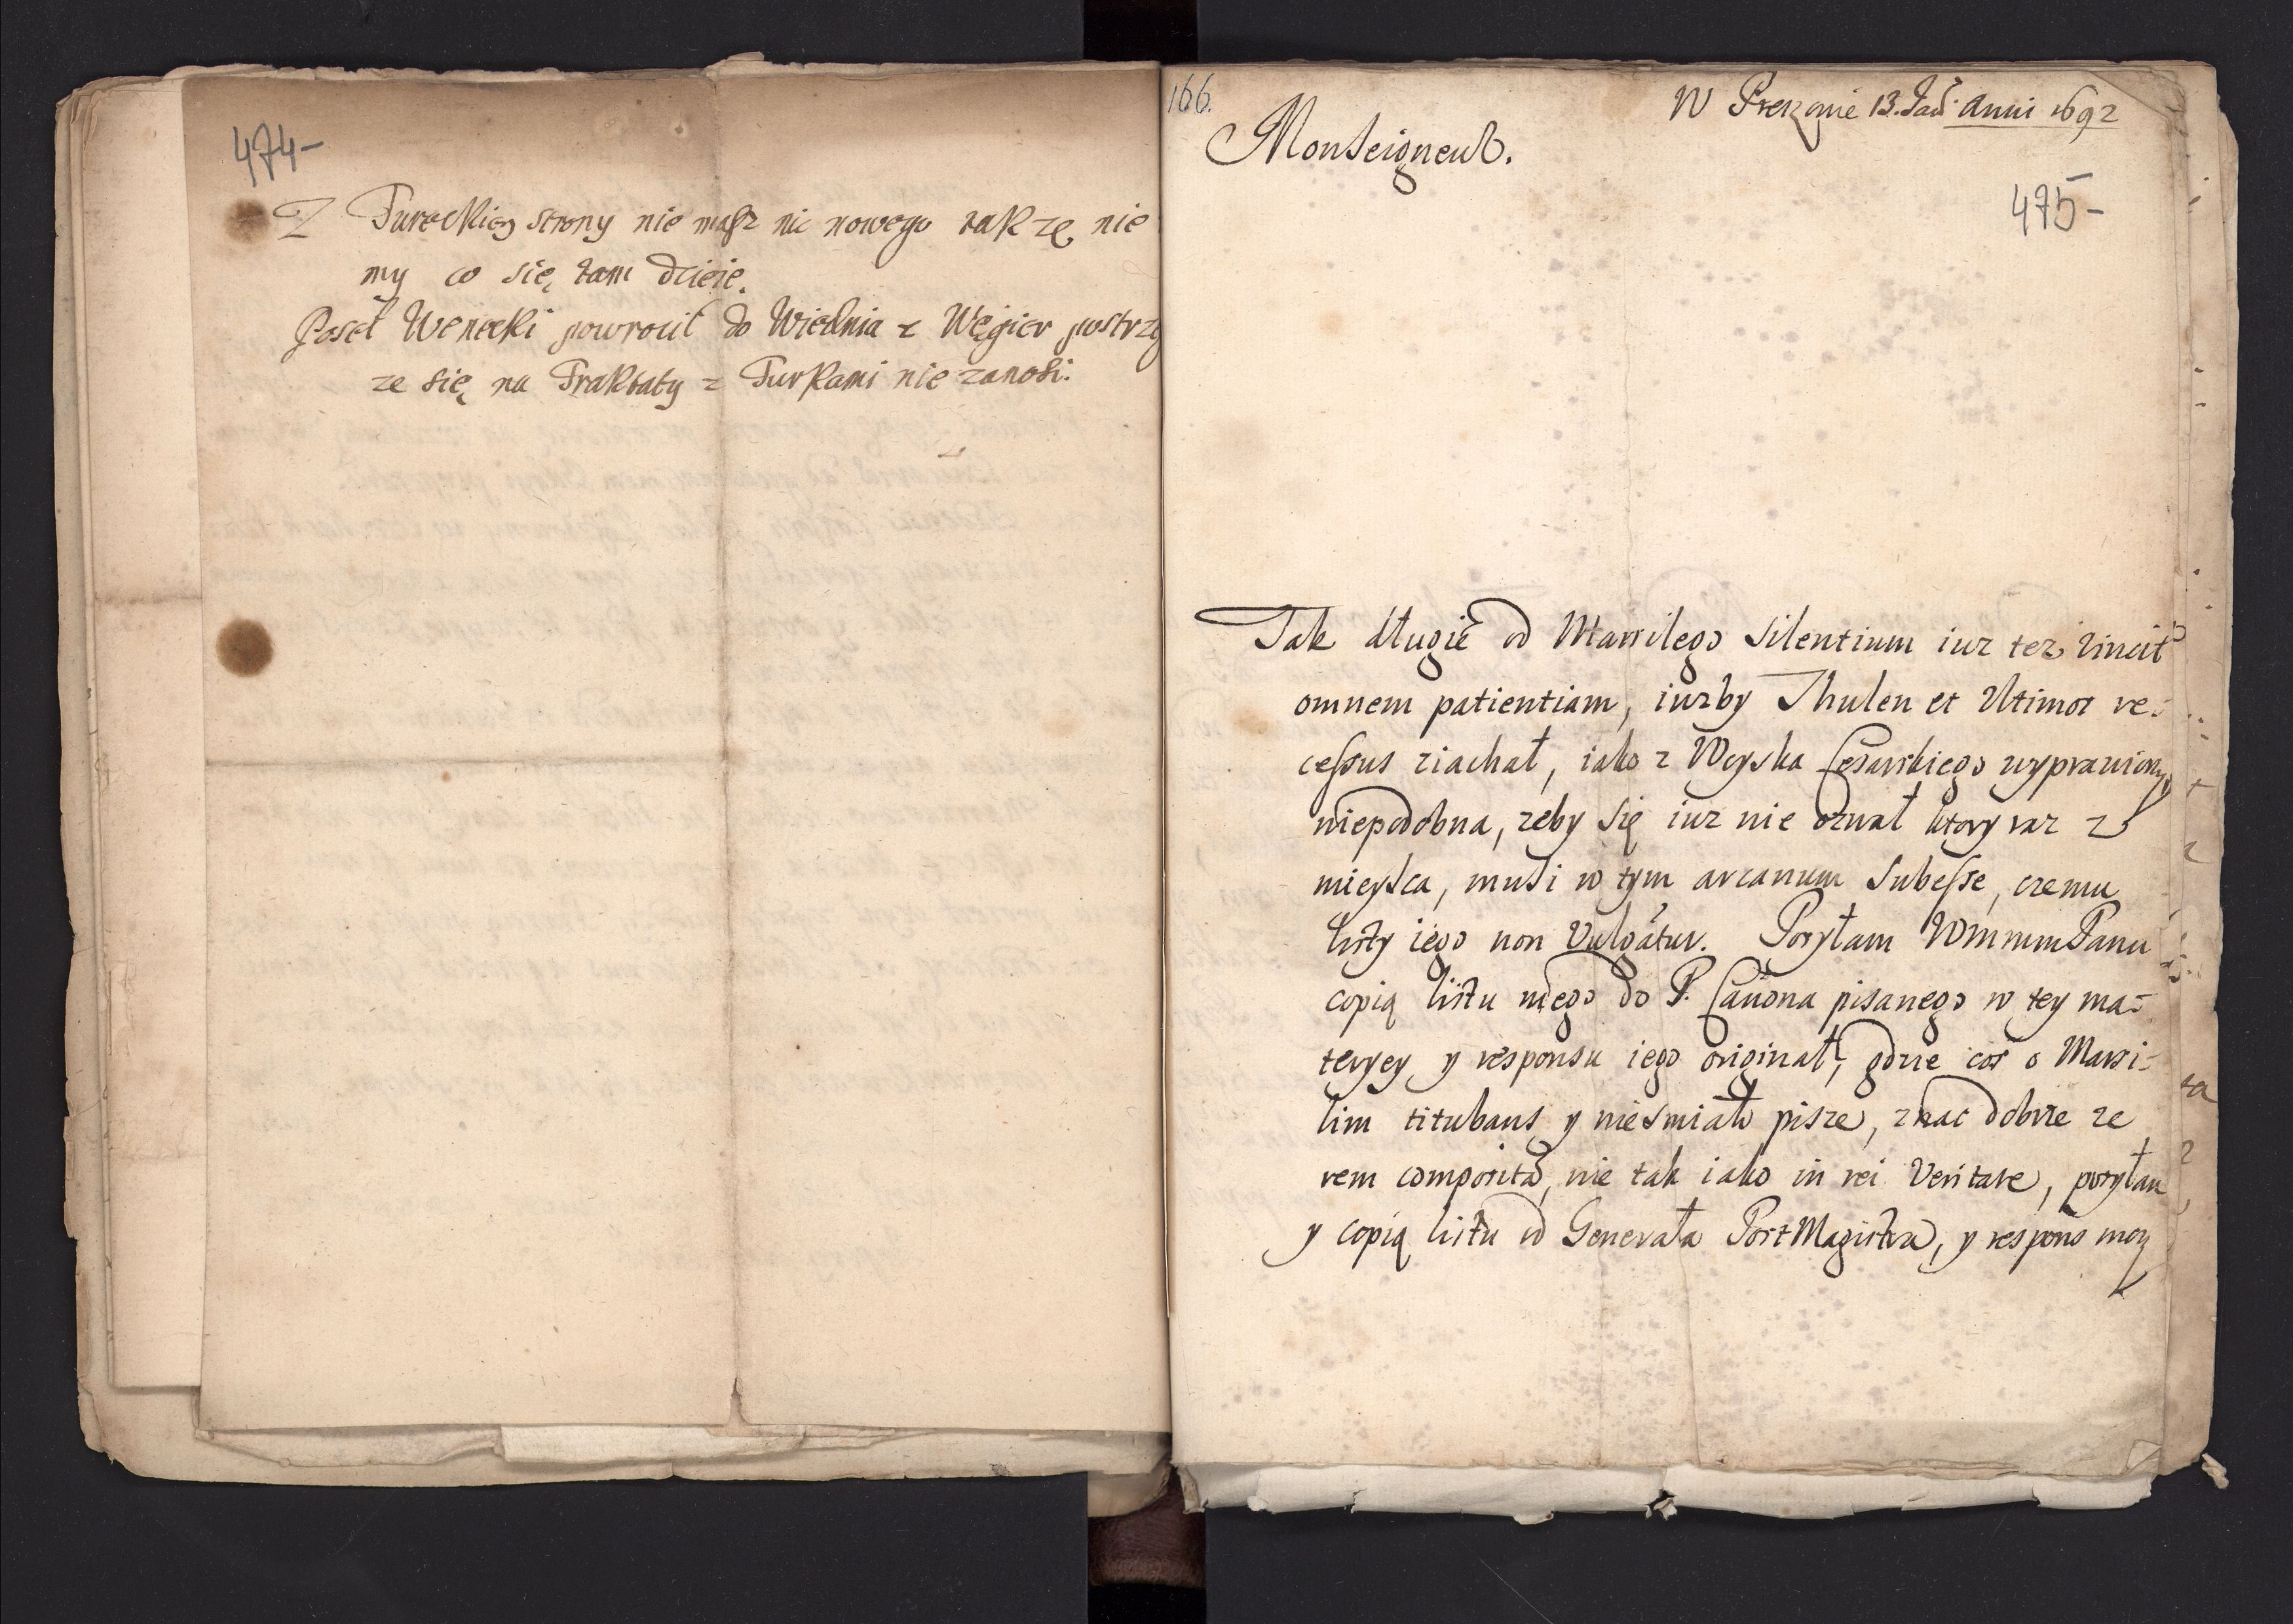 474-
Z Tureckiey strony nie masz nic nowego takze nie
my co się tam dzieie.
Poseł Wenecki powrocił do Wiednia z Węgier postrzeg
ze się na Traktaty z Turkami nie zanosi.
166.
W Preszonie 13. Jan: Anni 1692
Monseigneur.
475-
Tak długie od Marsilego silentium iuz tez vincit
omnem patientiam, iuzby Thulen et Ultimos re-
cessus ziachał, iako z Woyska Cesarskiego wyprawiony
niepodobna, zeby się iuz nie ozwał ktory raz z
mieysca, musi w tym arcanum subesse, czemu
listy iego non vulgatur. Posyłam WmmmPanu
copią listu mego do P. Cauona pisanego w tey ma-
teryey y responsu iego originał, gdzie cos o Marsi-
lim titubans y niesmiało pisze, znac dobrze ze
rem composito, nie tak iako in rei veritate, posyłam
y copią listu od Generała PostMagistra, y respons moy